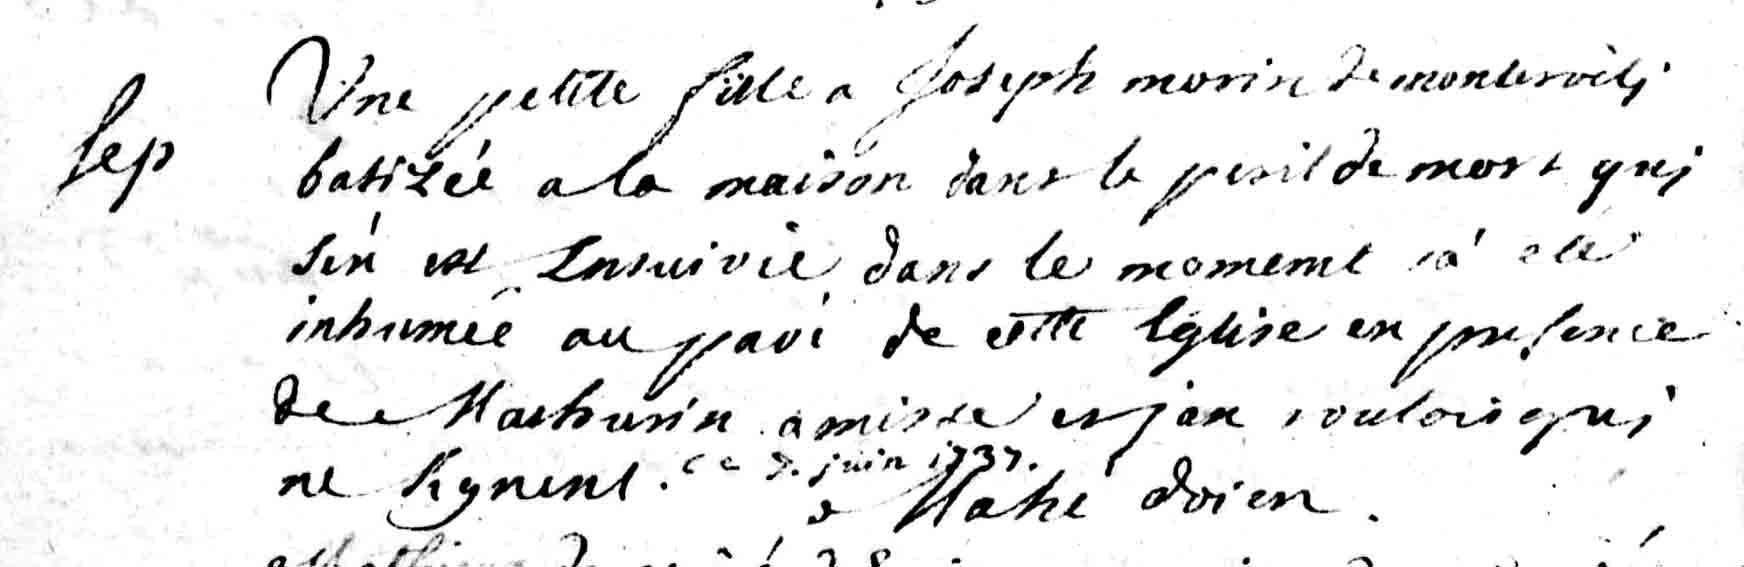 Une petite fille a Joseph morin de
sep
batizéé a la maison dans le peril de mort qui
s'en est Ensuivie dans le moment a eté
inhumée au pavé de cette Eglise en presence
de Mathurin amisse et jan qui
ne signent. ce 7. juin 1737.
Mahé doien.